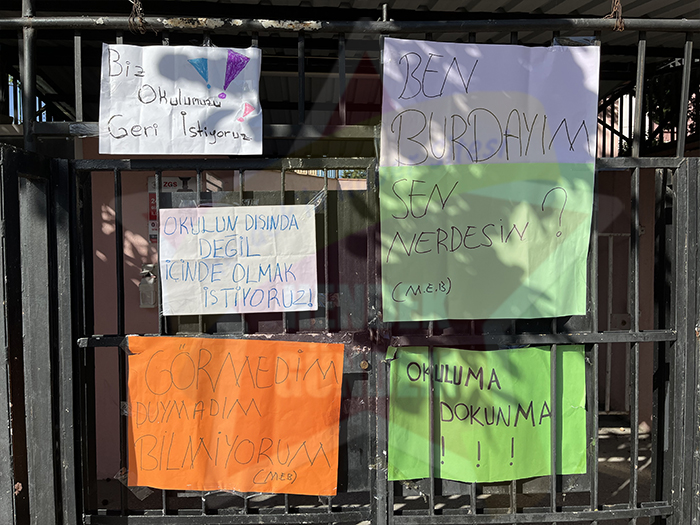 Biz
Okulumuzu
Geri İstiyoruz
OKULUN DIŞINDA
DEĞİL
İÇİNDE OLMAK
İSTİYORUZ!
BEN
BURDAYIM
SEN
NERDESİN ?
(M.E.B)
GÖRMEDİM
DUYMADIM
BİLMİYORUM
(MEB)
OKULUMA
DOKUNMA
! ! !